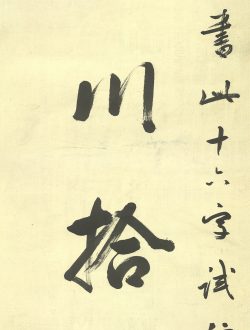 書此十六字試
川拾